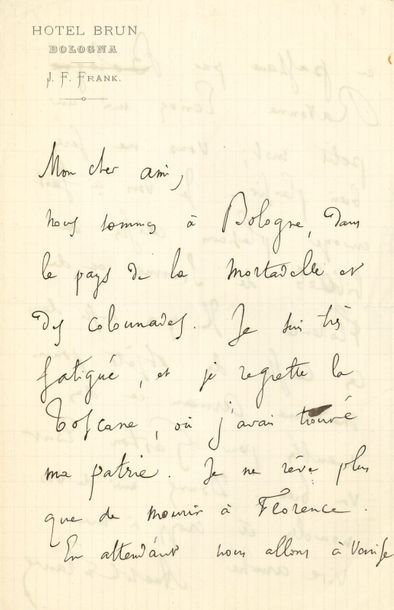 HOTEL BRUN
BOLOGNA
J. F. FRANK.
Mon cher ami,
nous sommes à Bologne, dans
le pays de la mortadelle et
des colonnades. Je suis très
fatigué, et je regrette la
Toscane, où j'avais trouvé
ma patrie. Je ne rêve plus
que de mourir à Florence.
En attendant nous allons à Venise